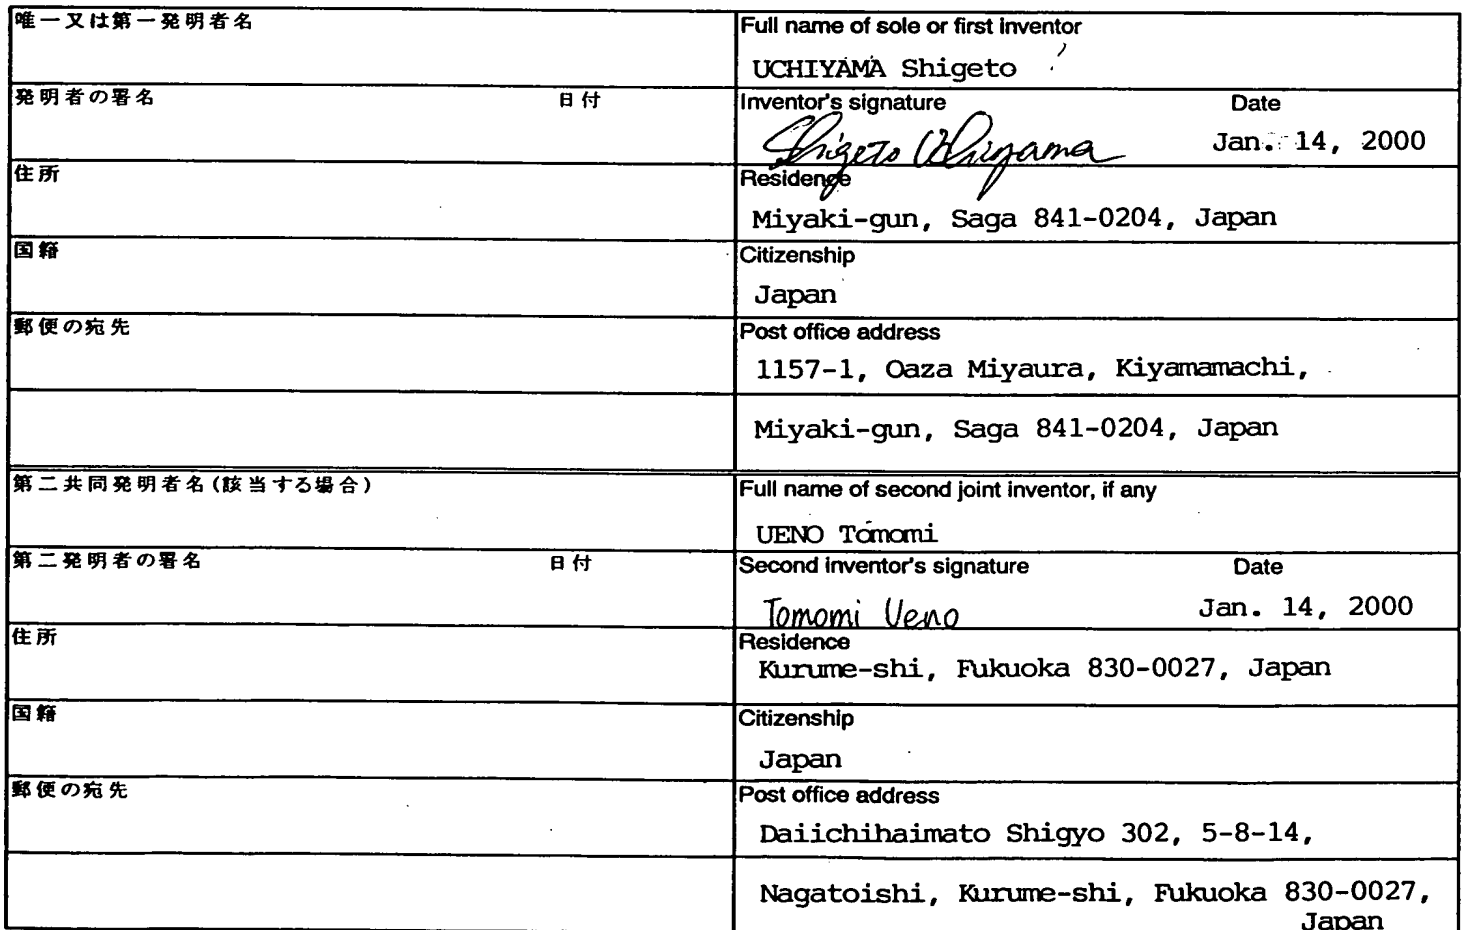 唯一又は第一発明者名
Full name of sole or first inventor
UCHIYAMA Shigeto
発明者の署名 日付
Inventor's signature Date
Shigeto Uchiyama Jan. 14, 2000
住所
Residence
Miyaki-gun, Saga 841-0204, Japan
国籍
Citizenship
Japan
郵便の宛先
Post office address
1157-1, Oaza Miyaura, Kiyamamachi,
Miyaki-gun, Saga 841-0204, Japan
第二共同発明者名(該当する場合)
Full name of second joint inventor, if any
UENO Tomomi
第二発明者の署名 日付
Second inventor's signature Date
Tomomi Ueno Jan. 14, 2000
住所
Residence
Kurume-shi, Fukuoka 830-0027, Japan
国籍
Citizenship
Japan
郵便の宛先
Post office address
Daiichihaimato Shigyo 302, 5-8-14,
Nagatoishi, Kurume-shi, Fukuoka 830-0027,
Japan